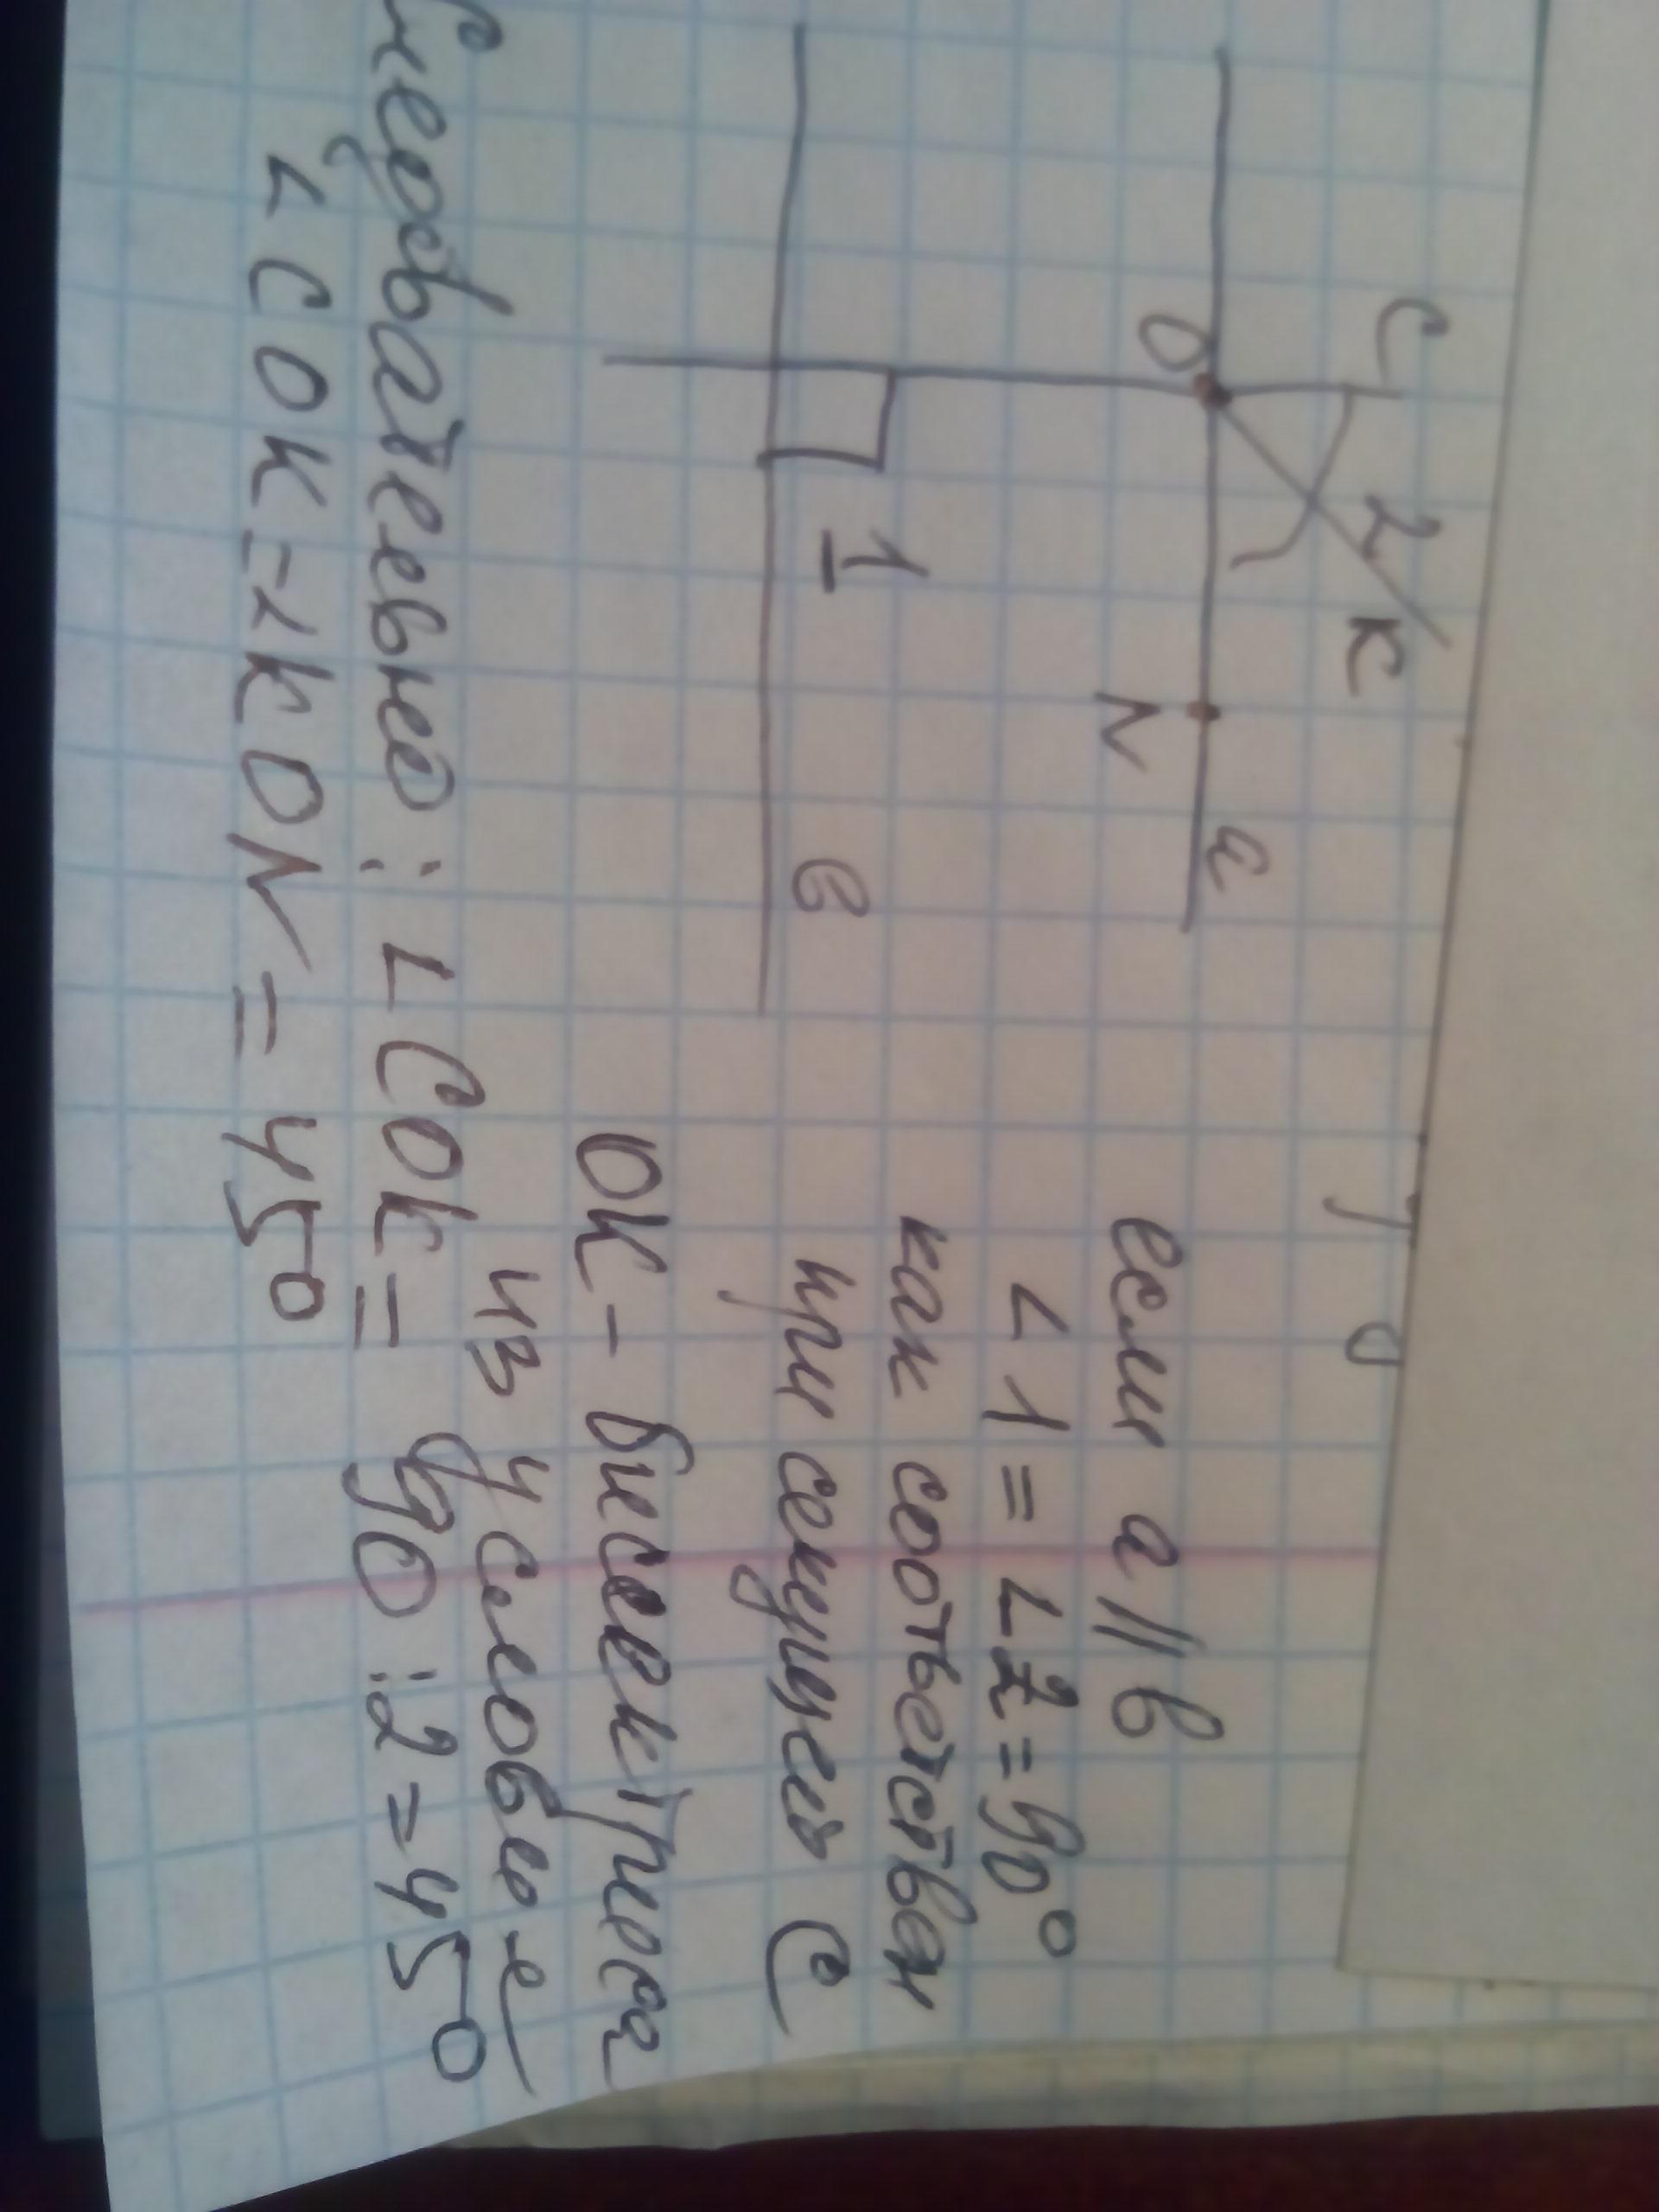 C
2
K
O
N
a
1
в
если a || b
∠1 = ∠2 = 90°
как соответствен
при секущей C
OK - биссектриса
из условие
Следовательно: ∠COK = 90:2=45°
∠COK=∠KON=45°